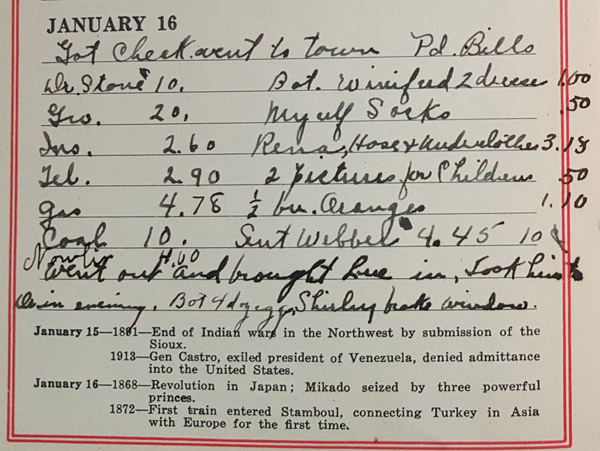 JANUARY 16
Got Check went to town Pd. Bills
Dr. Stone 10. Bot. Winifred 2 dresses 1.00
Gro. 20. Myself Socks .50
Ins. 2.60 Rena, Hose & Underclothes 3.18
Tel. 2.90 2 pictures for Children .50
Gas 4.78 ½ bu. Oranges 1.10
Coal 10. Sent Webber 4.45 10
4.00
Went out and brought in, Took him to
Dr in evening. Bot 4 dz eggs, Shirley broke window.
January 15—1891—End of Indian wars in the Northwest by submission of the
Sioux.
1913—Gen Castro, exiled president of Venezuela, denied admittance
into the United States.
January 16—1868—Revolution in Japan; Mikado seized by three powerful
princes.
1872—First train entered Stamboul, connecting Turkey in Asia
with Europe for the first time.